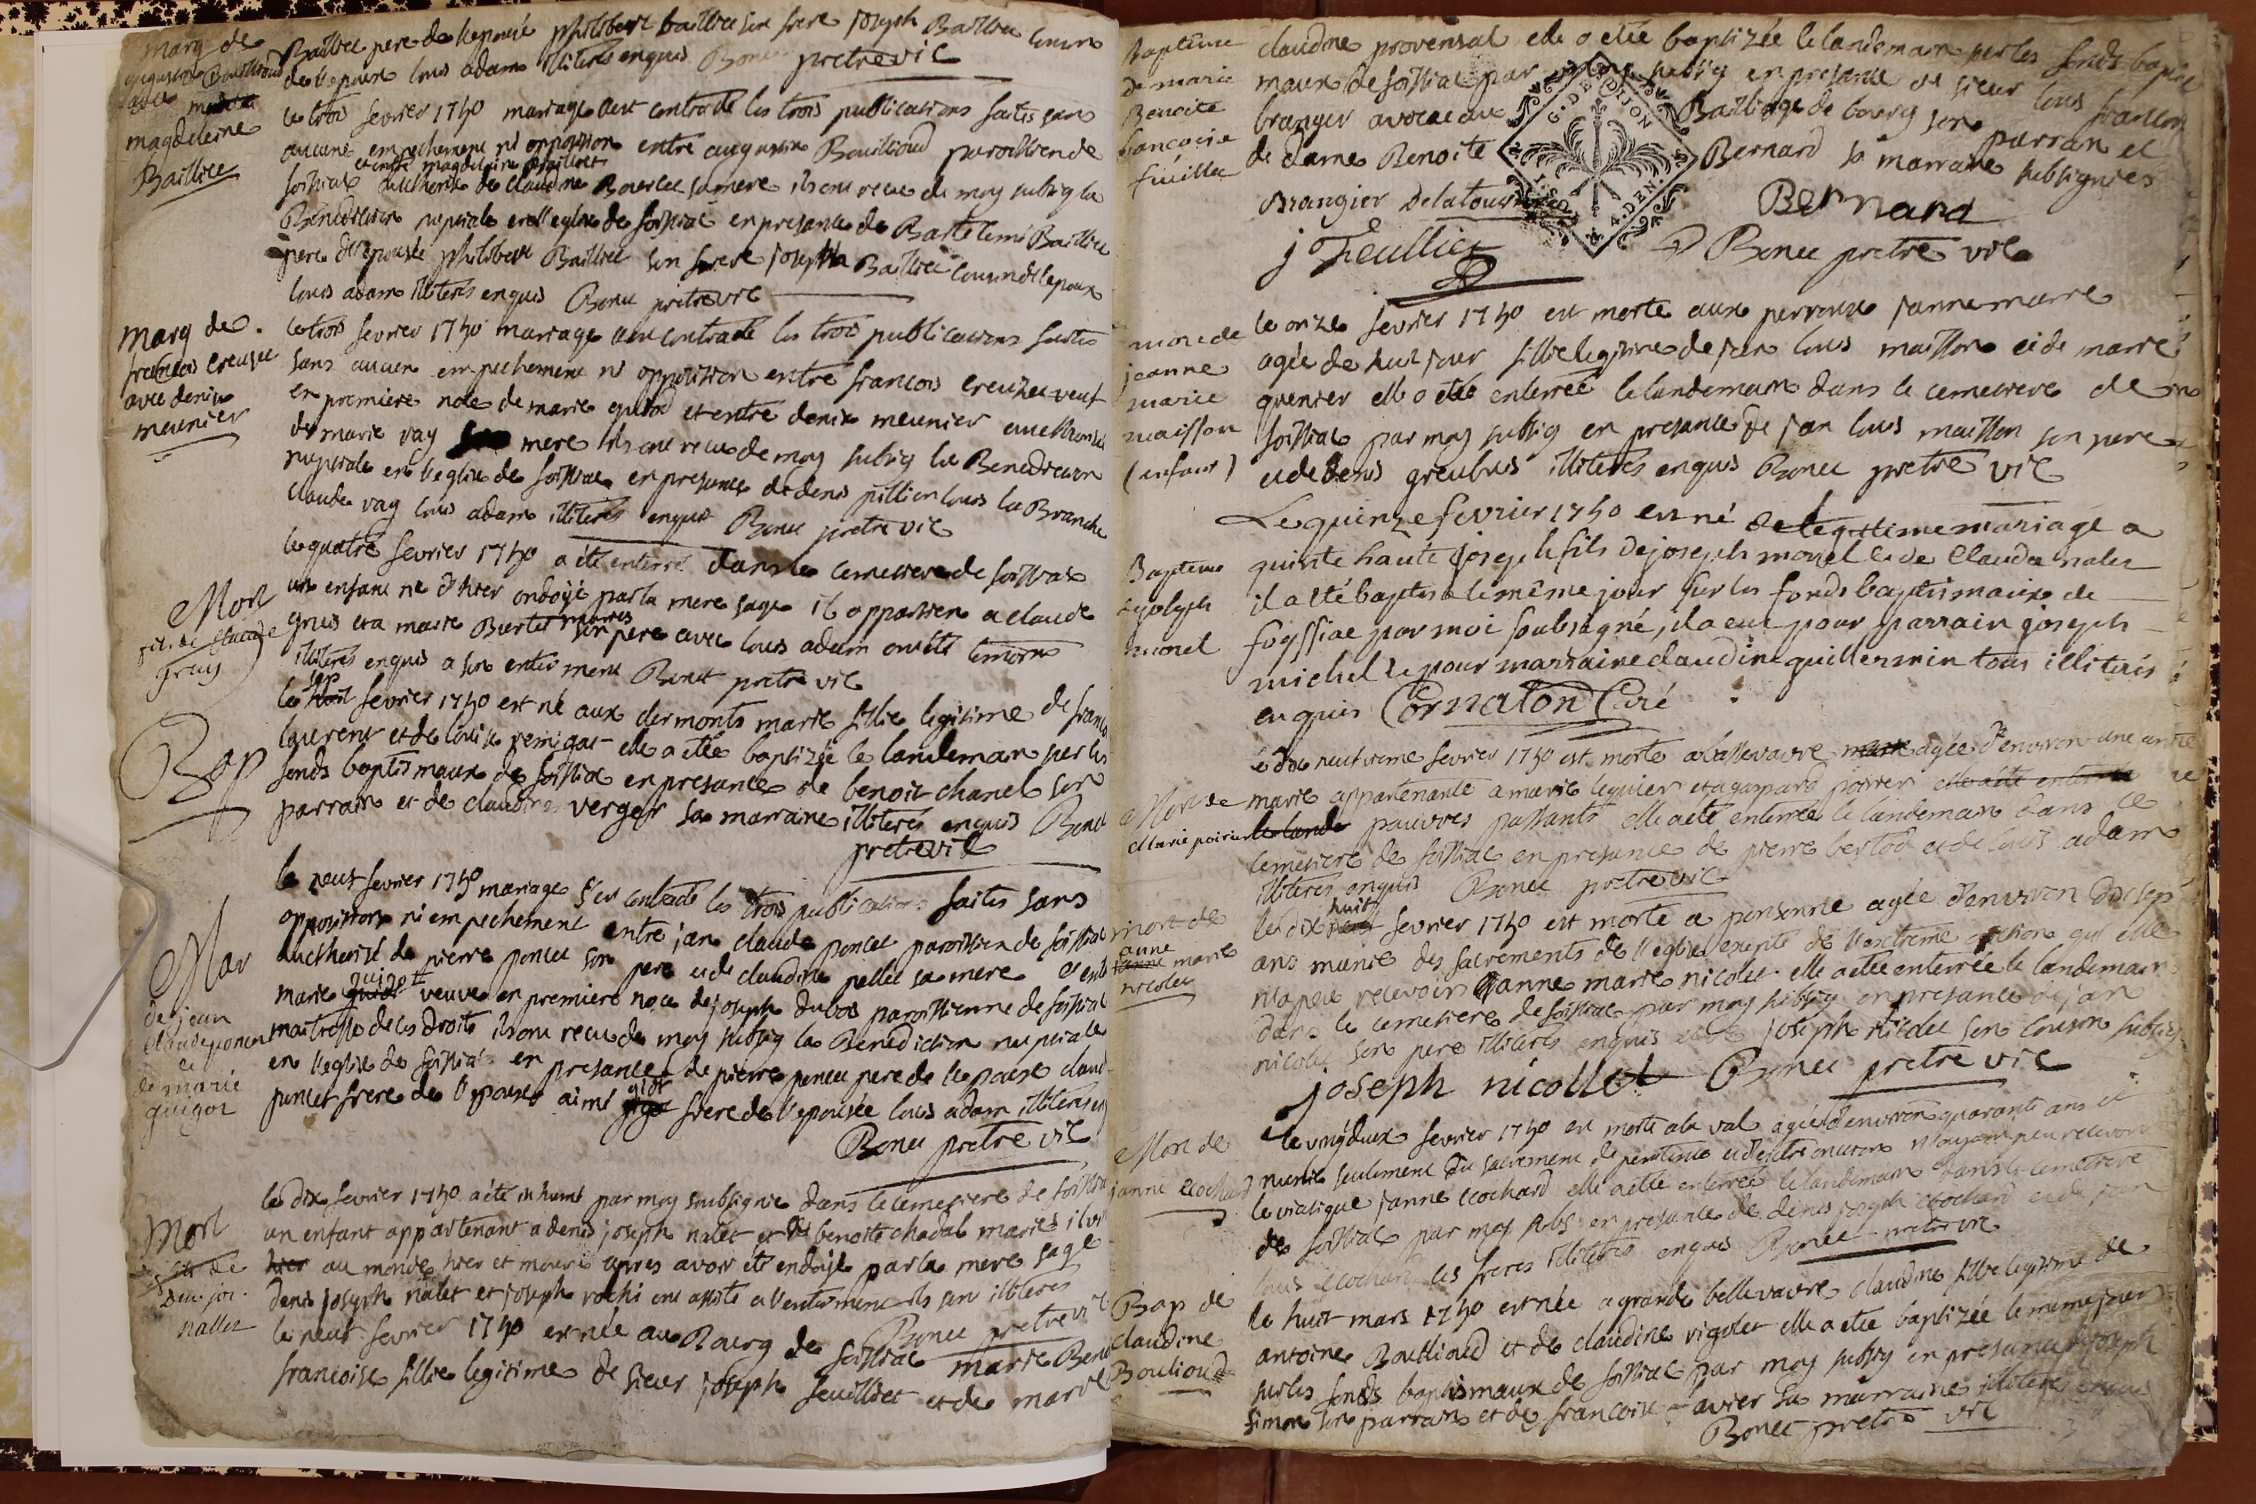 marg de
augustin Bouilloud
avec
magdeleine
Baillet
pere de l'epousée philibert baillet son frere joseph Baillet cousin
de l'epoux louis adam illiteres enquis Bonet pretre vic
le trois fevrier 1750 mariage s'est contracté les trois publications faites sans
aucune empechement ni opposition entre augustin Bouilloud paroissien de
et entre magdelaine Baillet
soissiac authorisé de claudine Bouclet sa mere ils ont recue de moy subsig la
Benediction nuptiale en l'eglise de soissiac en presance de Bartelemi Baillet
pere de l'epousée philibert Baillet son frere joseph Baillet cousin de l'epoux
louis adam illiteres enquis Bonet pretre vic
marg de
francois creuzet
avec denise
meunier
le trois fevrier 1750 mariage s'est contracté les trois publications faites
sans aucun empechement ni opposition entre francois creuzet veuf
en premiere noce de marie et entre denise meunier authorisée
de marie vay mere ils ont recue de moy subsig la Benediction
nuptiale en l'eglise de soissiac en presance de denis pillion louis la Branche
claude vay louis adam illiteres enquis Bonet pretre vic
Mort
fils de claude
gruy
le quatre fevrier 1750 a été enterré dans le cemetiere de soissiac
un enfant né d'hier ondoyé par la mere sage il appartien a claude
grus et a marie Burtet mariés son pere avec louis adam ont été temoins
illiteres enquis a son enterrement Bonet pretre vic
Bap
le sep fevrier 1750 est né aux clermonts marie fillie legitime de francois
laurent et de louise remigat elle a etée baptizée le landeman sur les
fonds baptismaux de soissiac en presance de benoit chanel son
parrain et de claudine verger sa marraine illiteres enquis Bonet
pretre vic
Mar
de jean
claude poncet
et
de marie
guigot
le neuf fevrier 1750 mariage s'est contracté les trois publications faites sans
opposition ni empechement entre jan claude poncet paroissien de soissiac
authorisé de pierre poncet son pere et de claudine pellet sa mere et entre
marie guigot veuve en premiere noce de joseph dubos paroissienne de soissiac
maitresse de ces droits ils ont recue de moy subsig la Benediction nuptiale
en l'eglise de soissiac en presance de pierre poncet pere de l'epoux claude
poncet frere de l'epoux aimé frere de l'epousée louis adam illiteres enq
Bonet pretre vic
Mort
fils de
den. jos.
nallet
le dix fevrier 1750 a été inhumé par moy soubsigné dans le cemetiere de soissiac
un enfant appartenant a denis joseph nalet et de benoite chadal mariés il vin
hier au monde hier et mouri apres avoir été endoyé par la mere sage
denis joseph nalet et joseph rochi ont assisté a l'enterrement ils sont illiteres
Bonet pretre vic
le neuf fevrier 1750 est née au Bourg de soissiac marie Benoite
francoise fillie legitime de sieur joseph feuillet et de marie
Baptême
de marie
Benoite
francoise
feuillet
claudine provensal elle a etée baptizée le landeman sur les fonds baptis
maux de soissiac par moy subsig en presance de sieur louis francois
brangier avocat au Bailliage de bourg son parran et
de dame Benoite Bernard sa marraine subsignés
G. DE DIJON
4. DEN.
Brangier Delatour Bernard
j Feuillet Bonet pretre vic
mort de
jeanne
marie
maisson
(enfant)
le onze fevrier 1750 est morte aux perroux janne marie
agée de huit jour fillie legitime de jan louis maisson et de marie
grenier elle a etée enterrée le landeman dans le cemetiere de
soissiac par moy subsig en presance de jan louis maisson son pere
et de denis greubus illiteres enquis Bonet pretre vic
Bapteme
de joseph
morel
Le quinze fevrier 1750 est né de legitime mariage a
quinte haute joseph fils de joseph morel et de Claudine nalet
il a été baptisé le même jour sur les fonds baptismaux de
foyssiac par moi soubsigné, il a eu pour parrain joseph
michel et pour marraine claudine guillermin tous illiterés
enquis Cornaton Curé
Mort de
Marie poirier
le dix neufvieme fevrier 1750 est morte a bellevavre agée d'environ une année
marie appartenante a marie leguier et a gaspard poirier
pauvres passants elle a eté enterrée le landeman dans le
cemetiere de soissiac en presance de pierre bertod et de louis adam
illiteres enquis Bonet pretre vic
mort de
anne
marie
nicolet
le dix huit fevrier 1750 est morte a pensennie agée d'environ dix sept
ans munie des sacrements de l'eglise exepté de l'extreme onction qu'elle
n'a peu recevoir anne marie nicolet elle a etée enterrée le landeman
dans le cemetiere de soissiac par moy subsig en presance de jan
nicolet son pere illiteres enquis et de joseph nicolet son cousin subsig
joseph nicollet Bonet pretre vic
Mort de
janne cochard
le vingdeux fevrier 1750 est morte a la val agée d'environ quarante ans et
munie seulement du sacrement de penitence et d'extre onction n'ayant peu recevoir
le viatique janne cochard elle a etée enterrée le landeman dans le cemetiere
de soissiac par moy subs en presance de denis joseph cochard et de jan
louis cochard ses freres illiteres enquis Bonet pretre vic
Bap de
claudine
Boulioud
le huit mars 1750 est née a grande bellevavre claudine fillie legitime de
antoine Bouilloud et de claudine vigolet elle a etée baptizée le meme jour
sur les fonds baptismaux de soissiac par moy subsig en presance de joseph
simon son parrain et de francoise favier sa marraine illiteres enquis
Bonet pretre vic